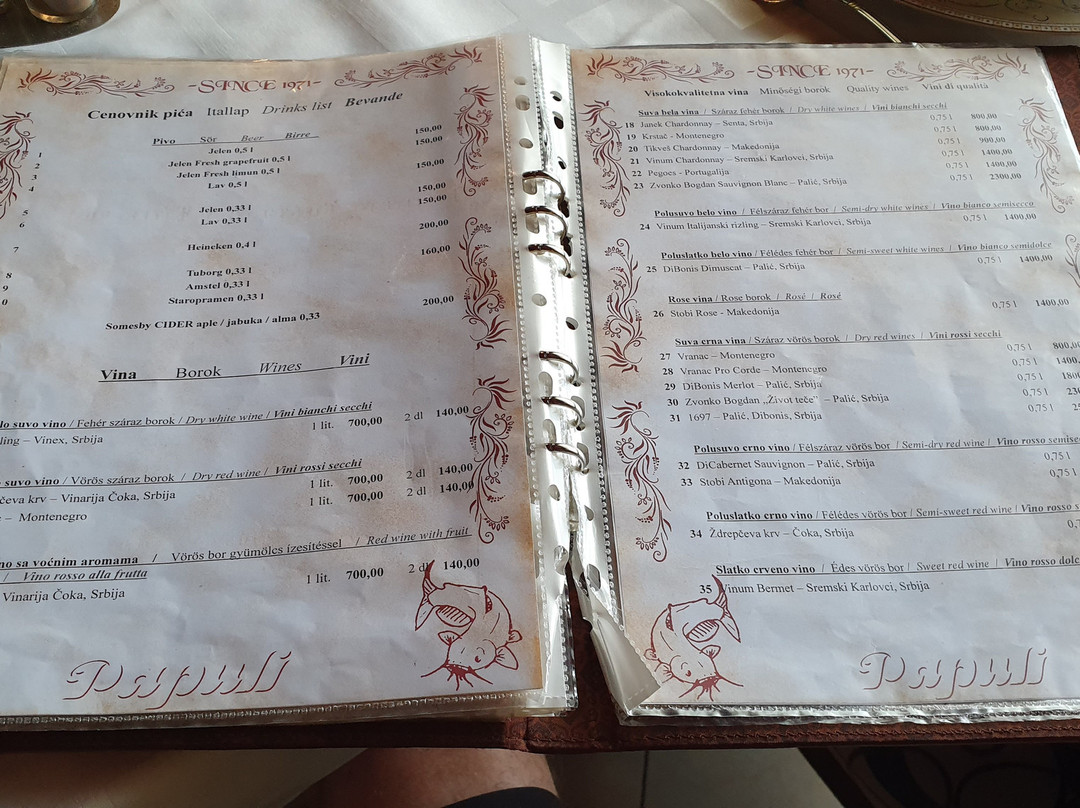 -SINCE 1971-
Cenovnik pića Itallap Drinks list Bevande
Pivo Sör Beer Birre
1 Jelen 0,5 l 150,00
2 Jelen Fresh grapefruit 0,5 l 150,00
3 Jelen Fresh limun 0,5 l
4 Lav 0,5 l 150,00
5 Jelen 0,33 l 150,00
6 Lav 0,33 l 150,00
7 Heineken 0,4 l 200,00
8 Tuborg 0,33 l 160,00
9 Amstel 0,33 l
0 Staropramen 0,33 l
Somesby CIDER aple / jabuka / alma 0,33 200,00
Vina Borok Wines Vini
lo suvo vino / Fehér száraz borok / Dry white wine / Vini bianchi secchi
ling – Vinex, Srbija 1 lit. 700,00 2 dl 140,00
suvo vino / Vörös száraz borok / Dry red wine / Vini rossi secchi
čeva krv – Vinarija Čoka, Srbija 1 lit. 700,00 2 dl 140,00
e – Montenegro 1 lit. 700,00 2 dl 140,00
no sa voćnim aromama / Vörös bor gyümölcs ízesítéssel / Red wine with fruit
/ Vino rosso alla frutta
Vinarija Čoka, Srbija 1 lit. 700,00 2 dl 140,00
Papuli
-SINCE 1971-
Visokokvalitetna vina Minőségi borok Quality wines Vini di qualitá
Suva bela vina / Száraz fehér borok / Dry white wines / Vini bianchi secchi
18 Janek Chardonnay – Senta, Srbija 0,75 l 800,00
19 Krstač - Montenegro 0,75 l 800,00
20 Tikveš Chardonnay – Makedonija 0,75 l 900,00
21 Vinum Chardonnay – Sremski Karlovci, Srbija 0,75 l 1400,00
22 Pegoes - Portugalija 0,75 l 1400,00
23 Zvonko Bogdan Sauvignon Blanc – Palić, Srbija 0,75 l 2300,00
Polusuvo belo vino / Félszáraz fehér bor / Semi-dry white wines / Vino bianco semisecco
24 Vinum Italijanski rizling – Sremski Karlovci, Srbija 0,75 l 1400,00
Poluslatko belo vino / Félédes fehér bor / Semi-sweet white wines / Vino bianco semidolce
25 DiBonis Dimuscat – Palić, Srbija 0,75 l 1400,00
Rose vina / Rose borok / Rosé / Rosé
26 Stobi Rose - Makedonija 0,75 l 1400,00
Suva crna vina / Száraz vörös borok / Dry red wines / Vini rossi secchi
27 Vranac – Montenegro 0,75 l 800,00
28 Vranac Pro Corde – Montenegro 0,75 l 1400
29 DiBonis Merlot – Palić, Srbija 0,75 l 1800
30 Zvonko Bogdan „Život teče“ – Palić, Srbija 0,75 l 23
31 1697 – Palić, Dibonis, Srbija 0,75 l
Polusuvo crno vino / Félszáraz vörös bor / Semi-dry red wine / Vino rosso semise
32 DiCabernet Sauvignon – Palić, Srbija 0,75 l
33 Stobi Antigona – Makedonija 0,75 l
Poluslatko crno vino / Félédes vörös bor / Semi-sweet red wine / Vino rosso s
34 Ždrepčeva krv – Čoka, Srbija
Slatko crveno vino / Édes vörös bor / Sweet red wine / Vino rosso dolc
35 Vinum Bermet – Sremski Karlovci, Srbija
Papuli